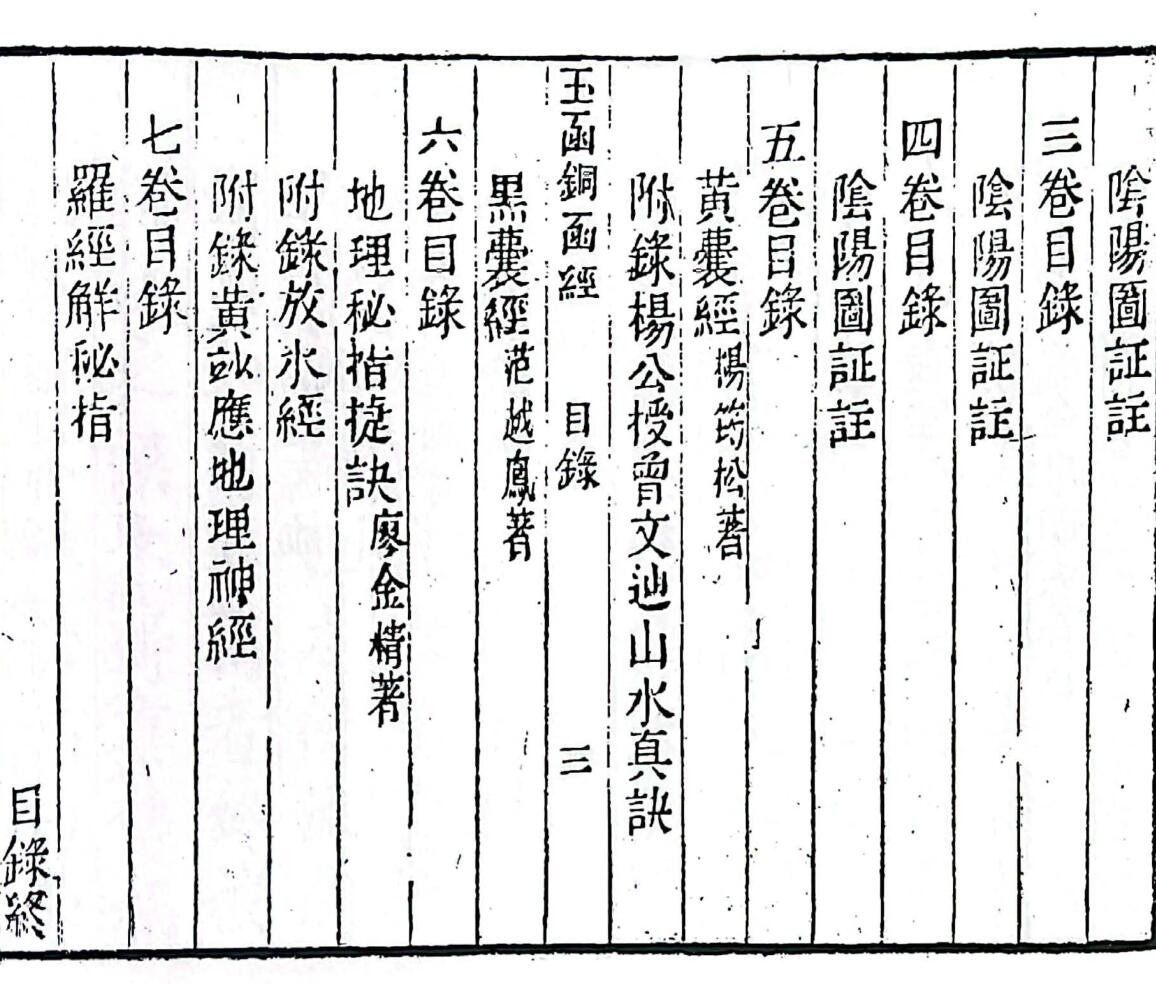 陰陽圖証註
三卷目錄
陰陽圖証註
四卷目錄
陰陽圖証註
五卷目錄
黃囊經 楊筠松著
附錄楊公授曾文辿山水真訣
玉函銅函經 目錄 三
黑囊經 范越鳳著
六卷目錄
地理秘指捷訣 廖金精著
附錄放水經
附錄黃玅應地理神經
七卷目錄
羅經解秘指
目錄終